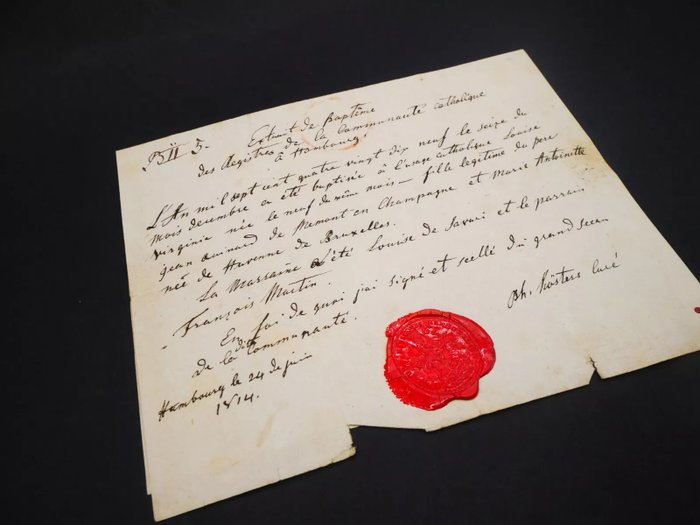 Extrait de Baptême
des Registres de la Communauté catholique
à Hambourg.
L'An mil sept cent quatre vingt dix neuf le seize du
mois decembre a eté baptisée à l'usage catholique Louise
virginie née le neuf du même mois — fille legitime du pere
jean de Memont en Champagne et Marie Antoinette
née de Havenne de Bruxelles.
La Marraine a été Louise de Savari et le parrain
François Martin.
En foi de quoi j'ai signé et scellé du grand sceau
de la dite Communauté.
Ph. Kösters Curé
Hambourg le 24 de juin
1814.